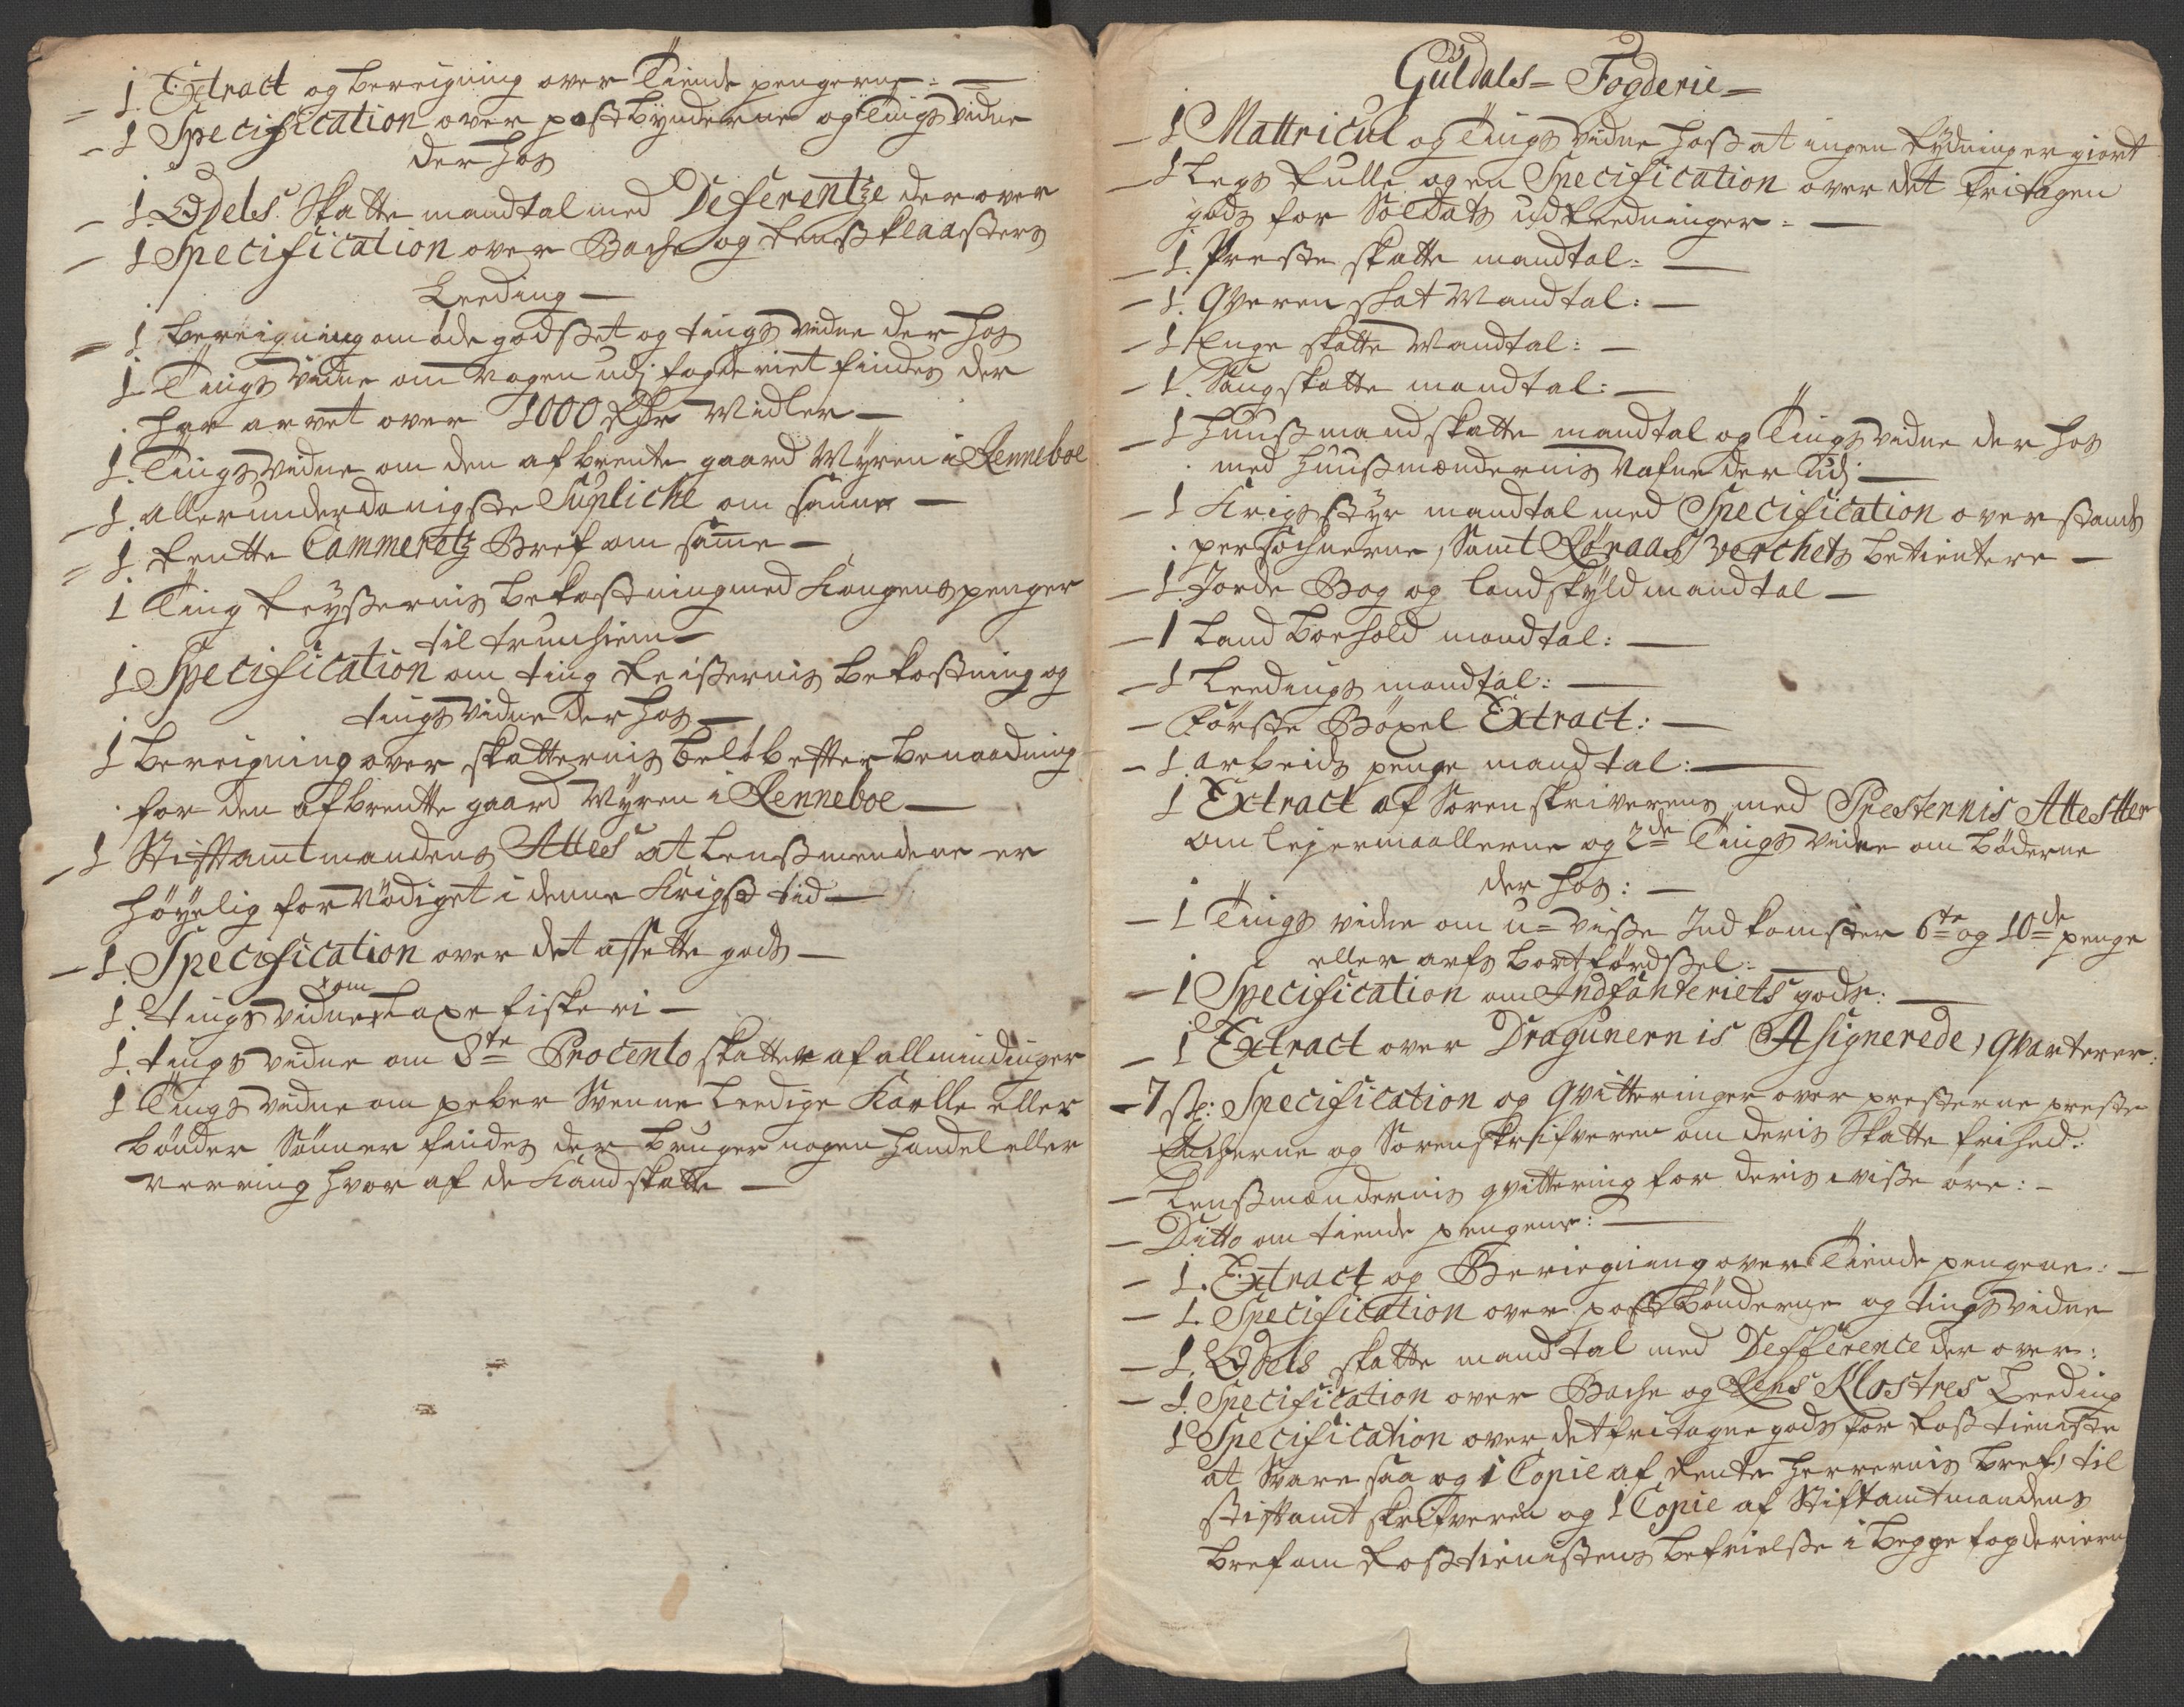 – 1 Extract og bereigning over Tiende pengerne: —
– 1 Specification over postbynderne og Tings vidne
der hos
– 1. Odels Skatte mandtal med Deferentze der over
– 1 Specification over Bache og Renß klaasters
Leeding —
– 1 bereigning om øde godset og tings vidne der hos
1 Tings vidne om nogen udj fogderiet findes der
har arvet over 1000 Rdr Midler —
1. Tings vidne om den afbrente gaard Myren i Renneboe
– 1. allerunderdanigste Supliche om samme —
– 1. Rentte Cammeretz Bref om same —
1 Ting Reyßernis bekostning med Kongens penger
til trunhiem —
1 Specification om ting Reißernis bekostning og
tings vidne der hos —
1 bereigning over skatternis beløb effter benaadning
for den afbrentte gaard Myren i Renneboe —
– 1 Stifftamtmandens Attest at Lensmendene er
höyelig for nödiget i denne Krigs tid —
– 1. Specification over det afsette gods —
om
1. tings vidne Laxe fiskeri —
1. tings vidne om 8te Procento skatter af allmindinger
1 Tings vidne om peber Svenne Leedige Karlle eller
bönder Sönner findes der bruger nogen handel eller
nerring hvor af de Kand skatte —
Guldals – Fogderie –
– 1 Mattricul og Tings vidne hoß at ingen Rydning er giort
– 1 Legs Rulle og en Specification over det fritagen
gods for Soldats udreedninger: —
– 1. Preste skatte mandtal: —
– 1. Qveren skat Mandtal: —
– 1 Enge skatte Mandtal: —
– 1. Saugskatte mandtal: —
– 1 Huußmand skatte mandtal og Tings vidne der hos
med Huußmændernis Nafne der Udj: —
– 1 Krigsstyr mandtal med Specification over stands
persohnerne, Samt Röraas Verchets betientere —
– 1. Jorde Bog og landskyld mandtal —
– 1 Land boehold mandtal: —
– 1 Leedings mandtal: —
– Förste Böxel Extract: —
– 1. arbeids penge mandtal: —
1 Extract af Sorenskriverens med Prestennis Attestter
om lejermaallerne og 2de Tings vidne om böderne
der hos: —
– 1 Tings vidne om u=visse Ind komster 6te og 10de penge
eller arfs bortfördsel:
– 1 Specification om Indfanteriets gods: —
– 1 Extract over Dragunernis Asignerede, Qvarterer:
– 7 st: Specification og Qvitteringer over presterne preste
Encherne og Sorenskrifveren om deris Skatte frihed:
– Lensmændernis qvittering for deris visse öre: –
– Ditto om tiende pengene: —
– 1. Extract og Beriegning over Tiende pengene: –
– 1. Specification over postbönderne og tings vidne
– 1. Odels skatte mandtal med Defference der over:
– 1. Specification over Bache og Rens Klostres Leeding
1 Specification over det fritagne gods for Roß tieniste
at Svare saa og 1 Copie af Rente Herrernis bref, til
stifftamt skrifveren og 1 Copie af Stiftamtmandens
bref om Roßtienistens befrielse i begge fogderierne